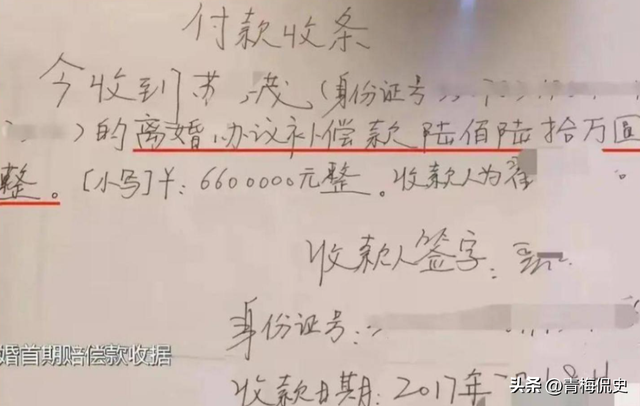 付款收条
今收到苏 茂（身份证号
）的离婚协议补偿款陆佰陆拾万圆
整。[小写]¥：6600000元整。收款人为翟
收款人签字：
身份证号：
婚首期赔偿款收据
收款日期：2017年
头条 @青梅侃史